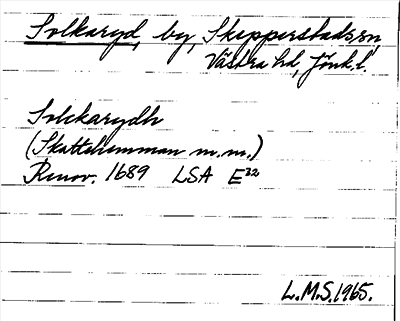 Solkaryd, by, Skepperstads sn,
Västra hd, Jönk. l.
Solckarydh
(Skattehemman m.m.)
Renov. 1689 LSA E32
L.M.S. 1965.